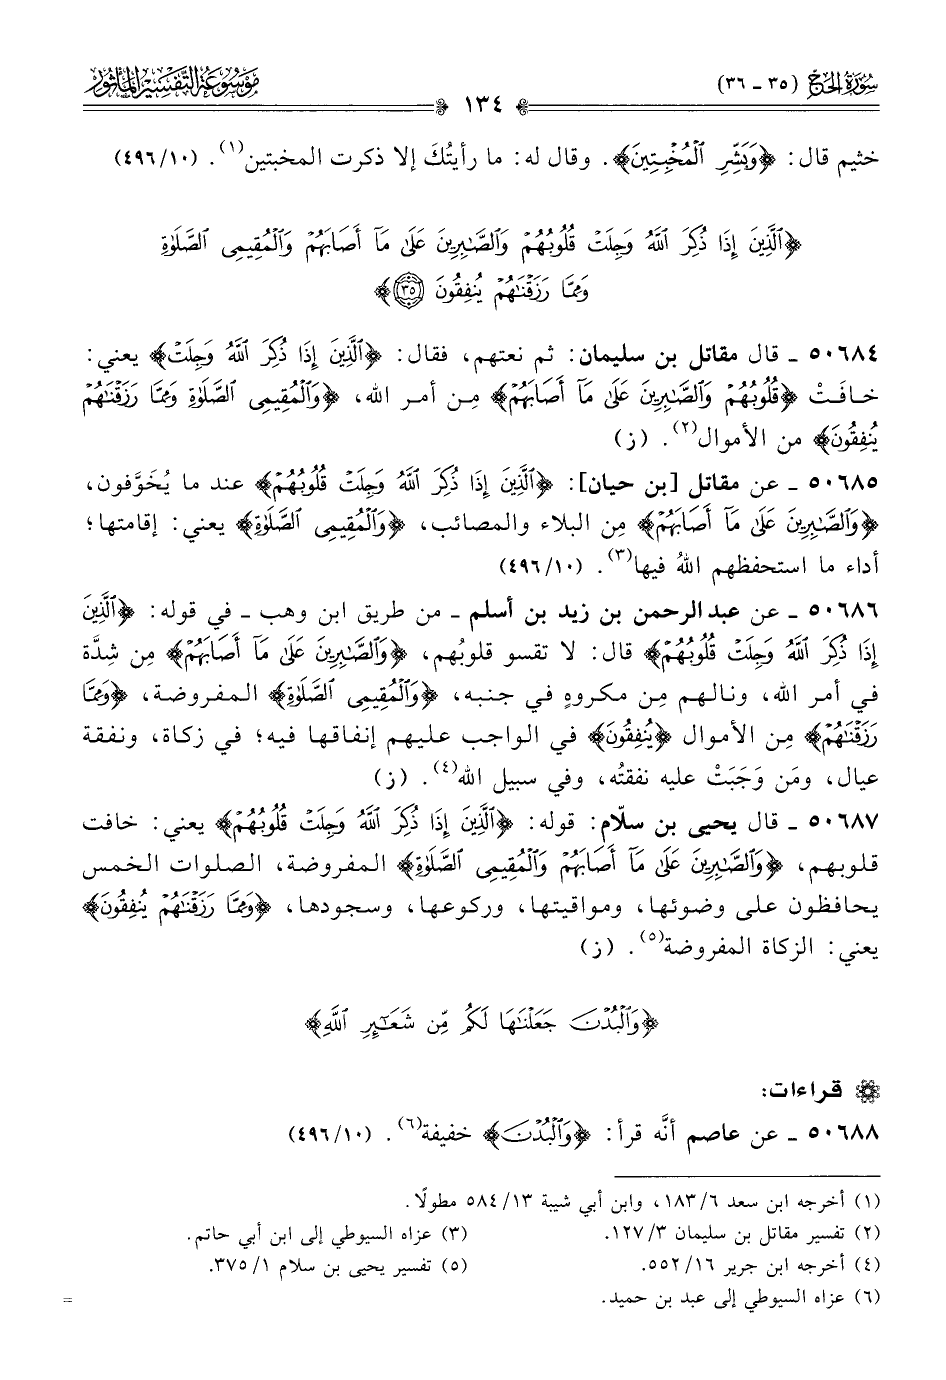 سورة الحج (٣٥ - ٣٦)
١٣٤
موسوعة التفسير المأثور
خثيم قال: ﴿وَبَشِّرِ ٱلْمُخْبِتِينَ﴾. وقال له: ما رأيتُكَ إلا ذكرت المخبتين(١). (٤٩٦/١٠)
﴿ٱلَّذِينَ إِذَا ذُكِرَ ٱللَّهُ وَجِلَتْ قُلُوبُهُمْ وَٱلصَّٰبِرِينَ عَلَىٰ مَآ أَصَابَهُمْ وَٱلْمُقِيمِى ٱلصَّلَوٰةِ
وَمِمَّا رَزَقْنَٰهُمْ يُنفِقُونَ ٣٥﴾
٥٠٦٨٤ - قال مقاتل بن سليمان: ثم نعتهم، فقال: ﴿ٱلَّذِينَ إِذَا ذُكِرَ ٱللَّهُ وَجِلَتْ﴾ يعني:
خافَتْ ﴿قُلُوبُهُمْ وَٱلصَّٰبِرِينَ عَلَىٰ مَآ أَصَابَهُمْ﴾ مِن أمر الله، ﴿وَٱلْمُقِيمِى ٱلصَّلَوٰةِ وَمِمَّا رَزَقْنَٰهُمْ
يُنفِقُونَ﴾ من الأموال(٢). (ز)
٥٠٦٨٥ - عن مقاتل [بن حيان]: ﴿ٱلَّذِينَ إِذَا ذُكِرَ ٱللَّهُ وَجِلَتْ قُلُوبُهُمْ﴾ عند ما يُخَوَّفون،
﴿وَٱلصَّٰبِرِينَ عَلَىٰ مَآ أَصَابَهُمْ﴾ مِن البلاء والمصائب، ﴿وَٱلْمُقِيمِى ٱلصَّلَوٰةِ﴾ يعني: إقامتها؛
أداء ما استحفظهم اللهُ فيها(٣). (٤٩٦/١٠)
٥٠٦٨٦ - عن عبد الرحمن بن زيد بن أسلم - من طريق ابن وهب - في قوله: ﴿ٱلَّذِينَ
إِذَا ذُكِرَ ٱللَّهُ وَجِلَتْ قُلُوبُهُمْ﴾ قال: لا تقسو قلوبُهم، ﴿وَٱلصَّٰبِرِينَ عَلَىٰ مَآ أَصَابَهُمْ﴾ مِن شِدَّة
في أمر الله، ونالهم مِن مكروهٍ في جنبه، ﴿وَٱلْمُقِيمِى ٱلصَّلَوٰةِ﴾ المفروضة، ﴿وَمِمَّا
رَزَقْنَٰهُمْ﴾ مِن الأموال ﴿يُنفِقُونَ﴾ في الواجب عليهم إنفاقها فيه؛ في زكاة، ونفقة
عيال، ومَن وَجَبَتْ عليه نفقتُه، وفي سبيل الله(٤). (ز)
٥٠٦٨٧ - قال يحيى بن سلّام: قوله: ﴿ٱلَّذِينَ إِذَا ذُكِرَ ٱللَّهُ وَجِلَتْ قُلُوبُهُمْ﴾ يعني: خافت
قلوبهم، ﴿وَٱلصَّٰبِرِينَ عَلَىٰ مَآ أَصَابَهُمْ وَٱلْمُقِيمِى ٱلصَّلَوٰةِ﴾ المفروضة، الصلوات الخمس
يحافظون على وضوئها، ومواقيتها، وركوعها، وسجودها، ﴿وَمِمَّا رَزَقْنَٰهُمْ يُنفِقُونَ﴾
يعني: الزكاة المفروضة(٥). (ز)
﴿وَٱلْبُدْنَ جَعَلْنَٰهَا لَكُم مِّن شَعَٰٓئِرِ ٱللَّهِ﴾
قراءات:
٥٠٦٨٨ - عن عاصم أنَّه قرأ: ﴿وَٱلْبُدْنَ﴾ خفيفة(٦). (٤٩٦/١٠)
(١) أخرجه ابن سعد ١٨٣/٦، وابن أبي شيبة ٥٨٤/١٣ مطولًا.
(٢) تفسير مقاتل بن سليمان ١٢٧/٣. (٣) عزاه السيوطي إلى ابن أبي حاتم.
(٤) أخرجه ابن جرير ٥٥٢/١٦. (٥) تفسير يحيى بن سلام ٣٧٥/١.
(٦) عزاه السيوطي إلى عبد بن حميد. =